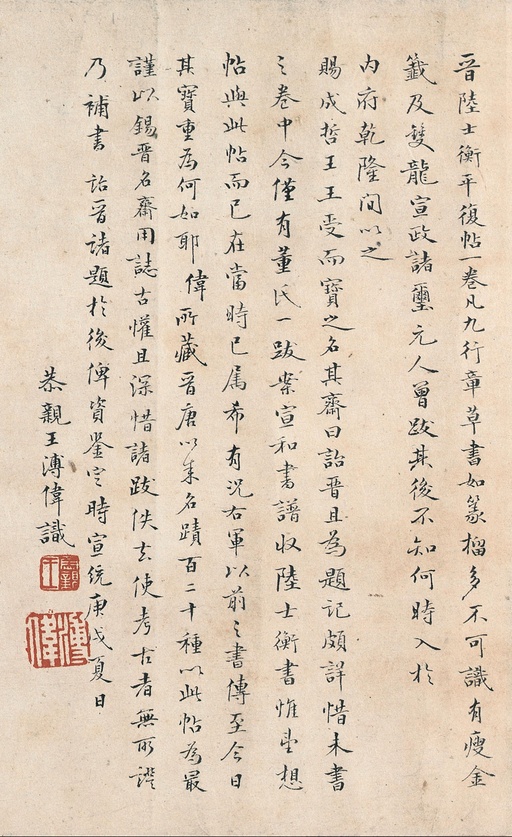 晉陸士衡平復帖一卷凡九行章草書如篆籀多不可識有瘦金
籤及雙龍宣政諸璽元人曾跋其後不知何時入於
內府乾隆間以之
賜成哲王王受而寶之名其齋曰詒晉且為題記頗詳惜未書
之卷中今僅有董氏一跋案宣和書譜收陸士衡書惟望想
帖與此帖而已在當時已屬希有況右軍以前之書傳至今日
其寶重為何如耶偉所藏晉唐以來名蹟百二十種以此帖為最
謹以錫晉名齋用誌古懽且深惜諸跋佚去使考古者無所證
乃補書詒晉諸題於後俾資鉴定時宣統庚戌夏日
恭親王溥偉識
恭親王
溥偉